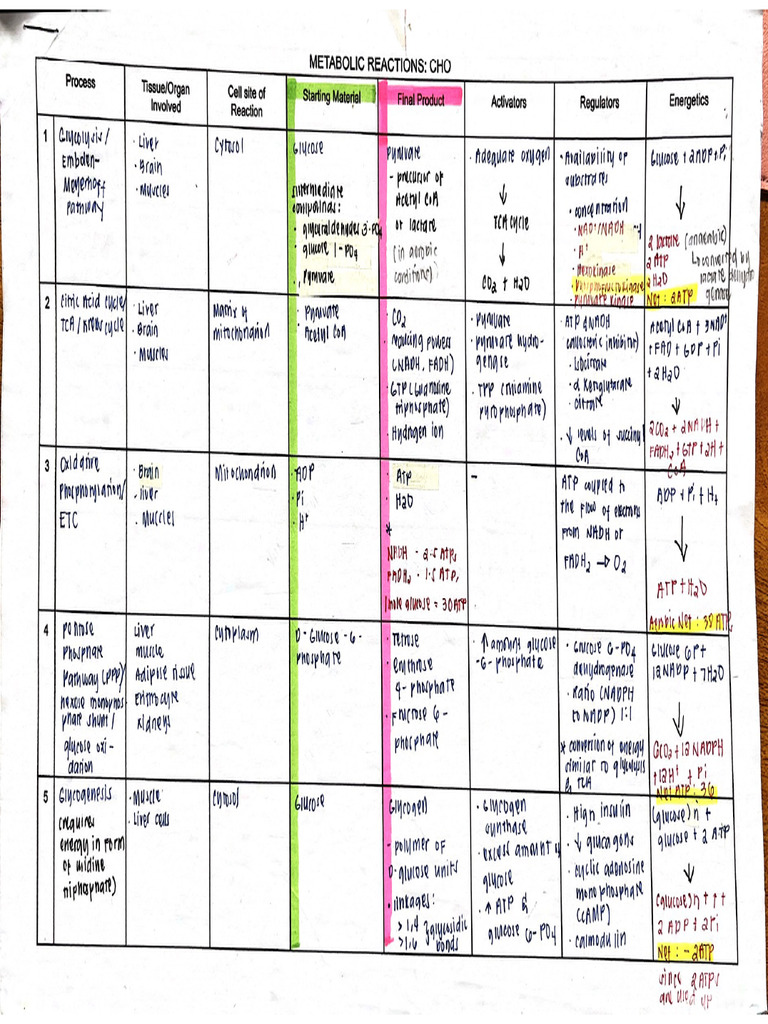 METABOLIC REACTIONS: CHO
Process
Tissue/Organ
Involved
Cell site of
Reaction
Starting Material
Final Product
Activators
Regulators
Energetics
1
Glycolysis /
Embden-
Meyerhoff
Pathway
• Liver
• Brain
• Muscles
Cytosol
Glucose
Intermediate
compounds:
• glyceraldehyde 3-PO4
• glucose 1-PO4
• Pyruvate
Pyruvate
- precursor of
Acetyl CoA
or lactate
(in aerobic
conditions)
• Adequate oxygen
↓
TCA cycle
↓
CO2 + H2O
• Availability of
substrates
• concentration
NAD+/NADH
• Hexokinase
• Pyruvate kinase
Glucose + 2ADP + Pi
↓
2 lactate (anaerobic)
2 ATP
2 H2O
Net: 2ATP
↳ converted by
lactate
2
Citric Acid cycle/
TCA / Krebs cycle
• Liver
• Brain
• Muscles
Matrix of
mitochondrion
• Pyruvate
• Acetyl CoA
• CO2
• reducing powers
(NADH, FADH)
• GTP (Guanosine
triphosphate)
• Hydrogen ion
• Pyruvate
• Pyruvate hydro-
genase
• TPP (thiamine
pyrophosphate)
ATP & NADH
(allosteric inhibitine)
• Isocitrate
• α Ketoglutarate
• citrate
• ↓ levels of succinyl
CoA
Acetyl CoA + 3NAD
+ FAD + GDP + Pi
+ 2H2O
↓
2CO2 + 2NADH +
FADH2 + GTP + 2H +
CoA
3
Oxidative
Phosphorylation/
ETC
• Brain
• Liver
• Muscles
Mitochondrion
• ADP
• Pi
• H+
• ATP
• H2O
*
NADH - 2.5 ATPs
FADH2 - 1.5 ATPs
1 mole glucose = 30 ATP
-
ATP coupled to
the flow of electrons
from NADH or
FADH2 → O2
ADP + Pi + H+
↓
ATP + H2O
Aerobic Net: 30 ATPs
4
Pentose
Phosphate
Pathway (PPP)/
hexose monophos
phate shunt/
glucose oxi-
dation
Liver
Muscle
Adipose tissue
Erythrocyte
Kidneys
Cytoplasm
D-Glucose-6-
phosphate
• Pentose
• erythrose
4-phosphate
• Fructose 6-
phosphate
↑ amount glucose
-6-phosphate
• Glucose 6-PO4
dehydrogenase
• ratio (NADPH
to NADP) 1:1
* conversion of energy
similar to glycolysis
& TCA
Glucose 6P +
12NADP + 7H2O
↓
6CO2 + 12NADPH
+ 12H+ + Pi
Net ATP: 36
5
Glycogenesis
(requires
energy in form
of uridine
triphosphate)
• Muscle
• Liver cells
Cytosol
Glucose
Glycogen
- polymer of
D-glucose units
• linkages:
> 1,4
> 1,6 } glycosidic
bonds
• Glycogen
synthase
• excess amount of
glucose
• ↑ ATP &
glucose 6-PO4
• High insulin
• ↓ glucagons
• cyclic adenosine
monophosphate
(cAMP)
• calmodulin
(glucose)n +
glucose + 2 ATP
↓
(glucose)n + 1 +
2 ADP + 2Pi
Net: -2ATP
since 2 ATPs
are used up